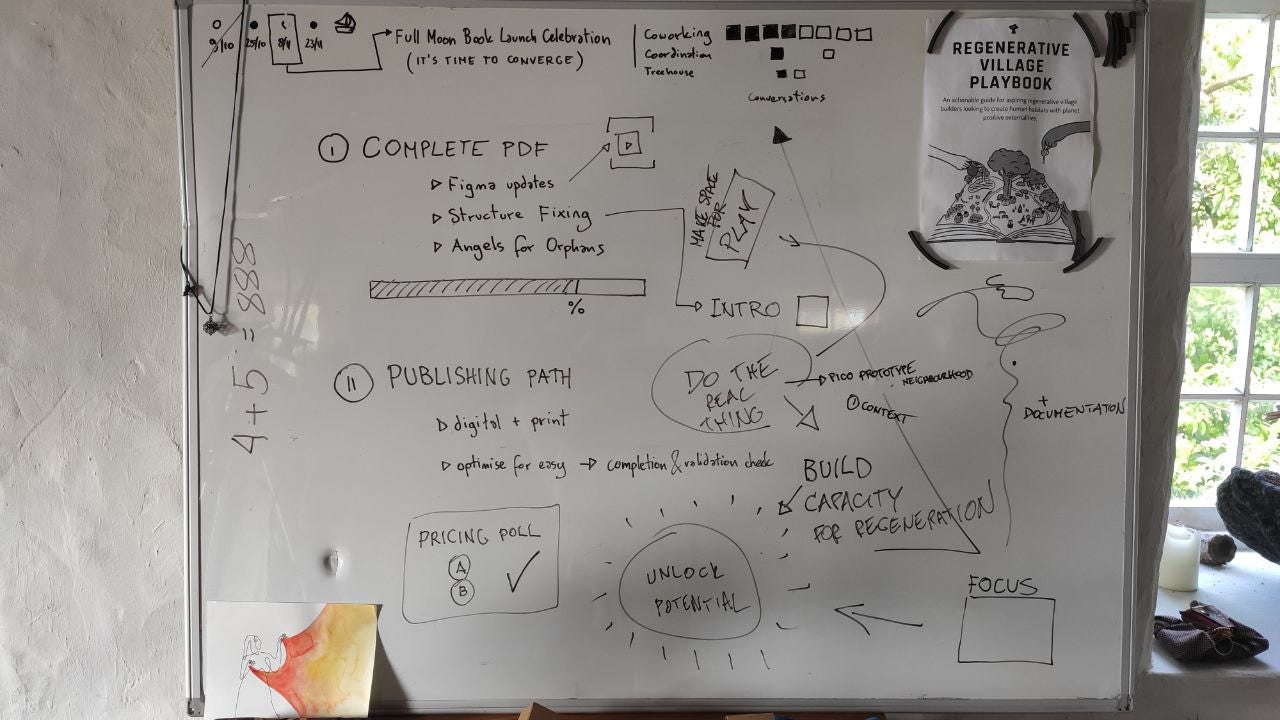 9/10 25/10 8/11 23/11
Full Moon Book Launch Celebration
(IT'S TIME TO CONVERGE)
Coworking
Coordination
Treehouse
Conversations
REGENERATIVE
VILLAGE
PLAYBOOK
An actionable guide for aspiring regenerative village
builders looking to create human habitats with planet
positive externalities.
I COMPLETE PDF
▷ Figma updates
▷ Structure Fixing
▷ Angels for Orphans
%
MAKE SPACE
FOR
PLAY
INTRO
4+5 = 888
II PUBLISHING PATH
▷ digital + print
▷ optimise for easy → completion & validation check
DO THE
REAL
THING
PICO PROTOTYPE
NEIGHBOURHOOD
CONTEXT
+
DOCUMENTATION
BUILD
CAPACITY
FOR REGENERATION
PRICING POLL
A
B
UNLOCK
POTENTIAL
FOCUS